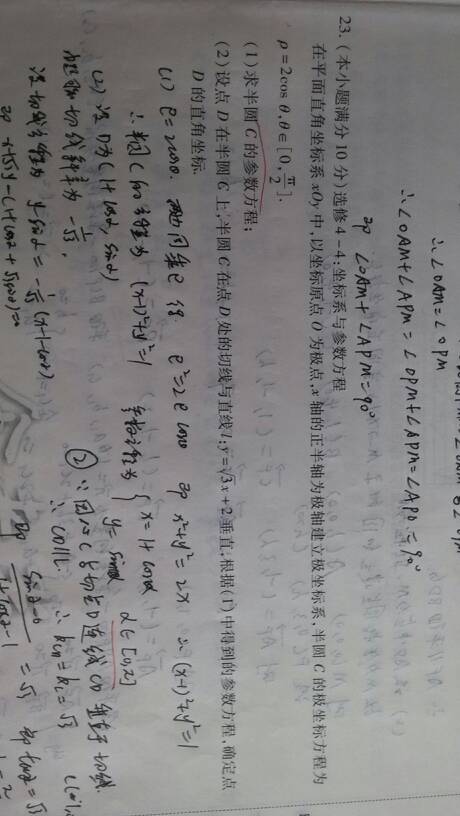 ∴∠OAM=∠OPM
∴∠OAM+∠APM=∠OPM+∠APM=∠APO=90°
即 ∠OAM+∠APM=90°
23.(本小题满分10分)选修4-4:坐标系与参数方程
在平面直角坐标系xOy中,以坐标原点O为极点,x轴的正半轴为极轴建立极坐标系,半圆C的极坐标方程为
ρ=2cos θ,θ∈[0,π/2].
(1)求半圆C的参数方程;
(2)设点D在半圆C上,半圆C在点D处的切线与直线l:y=√3x+2垂直,根据(1)中得到的参数方程,确定点
D的直角坐标.
(1) ρ=2cosθ. 两边同乘ρ得 ρ²=2ρcosθ 即 x²+y²=2x ∴(x-1)²+y²=1
∴半圆C的方程为 (x-1)²+y²=1 参数方程为 { x=1+cosα y=sinα α∈[0,π]
(2) 设D为(1+cosα, sinα)
② ∵圆心C与切点D连线CD垂直于切线
∴CD∥l ∴k_CD=k_l=√3
即 (sinα-0)/(1+cosα-1)=√3 即tanα=√3
切线斜率为 -1/√3,
设切线方程为 y-sinα=-1/√3(x-1-cosα)
即 x+√3y-(1+cosα+√3sinα)=0